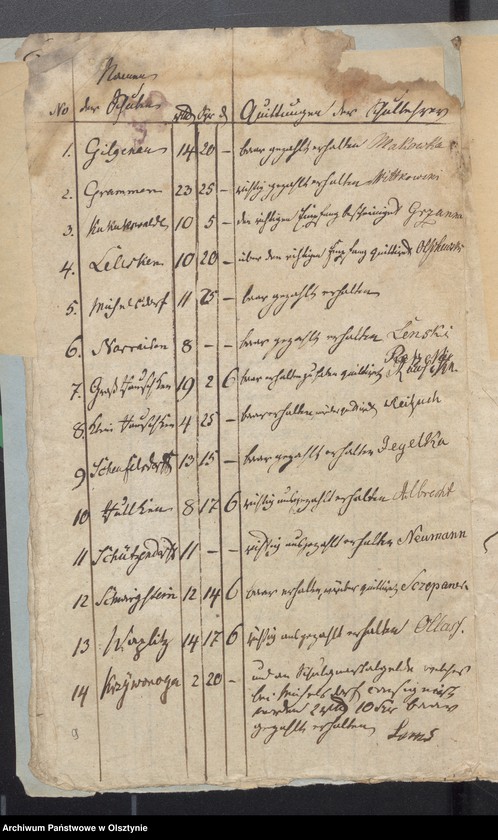 Namen
No der Schulen rtlr Sgr d Quittungen der Schullehrer
1. Gilgenau 14 20 – baar gezahlt erhalten Makowka
2. Grammen 23 25 – richtig gezahlt erhalten Wittkowski
3. 10 5 – den richtigen Empfang bescheinigt Grzanna
4. Leleschken 10 20 – über den richtigen Empfang quittirt
5. Michelsdorf 11 25 – baar gezahlt erhalten
6. Narraiten 8 – – baar gezahlt erhalten Lenski
7. Groß 19 2 6 baar erhalten zu haben quittirt
8. Klein 4 25 – baar erhalten
9 Scheufelsdorff 13 15 – baar gezahlt erhalten Jegelka
10 8 17 6 richtig ausgezahlt erhalten Albrecht
11 Schützendorff 11 – – richtig ausgezahlt erhalten Neumann
12 Schwirgstein 12 14 6 baar erhalten quittirt
13 Waplitz 14 17 6 richtig ausgezahlt erhalten
14 Krzywonoga 2 20 – und an Schulquartalgelde welches
bei Michelsdorf
worden 2 rtlr 10 Sgr baar
gezahlt erhalten
9
Archiwum Państwowe w Olsztynie